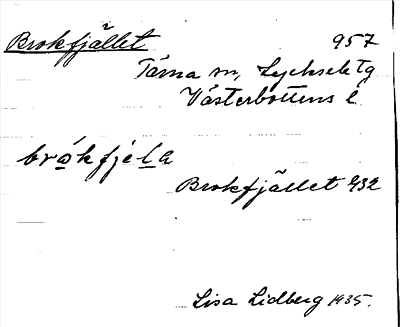 Brokfjället 957
Tärna sn, Lycksele tg
Västerbottens l.
brókfjela
Brokfjället 432
Lisa Lidberg 1935.